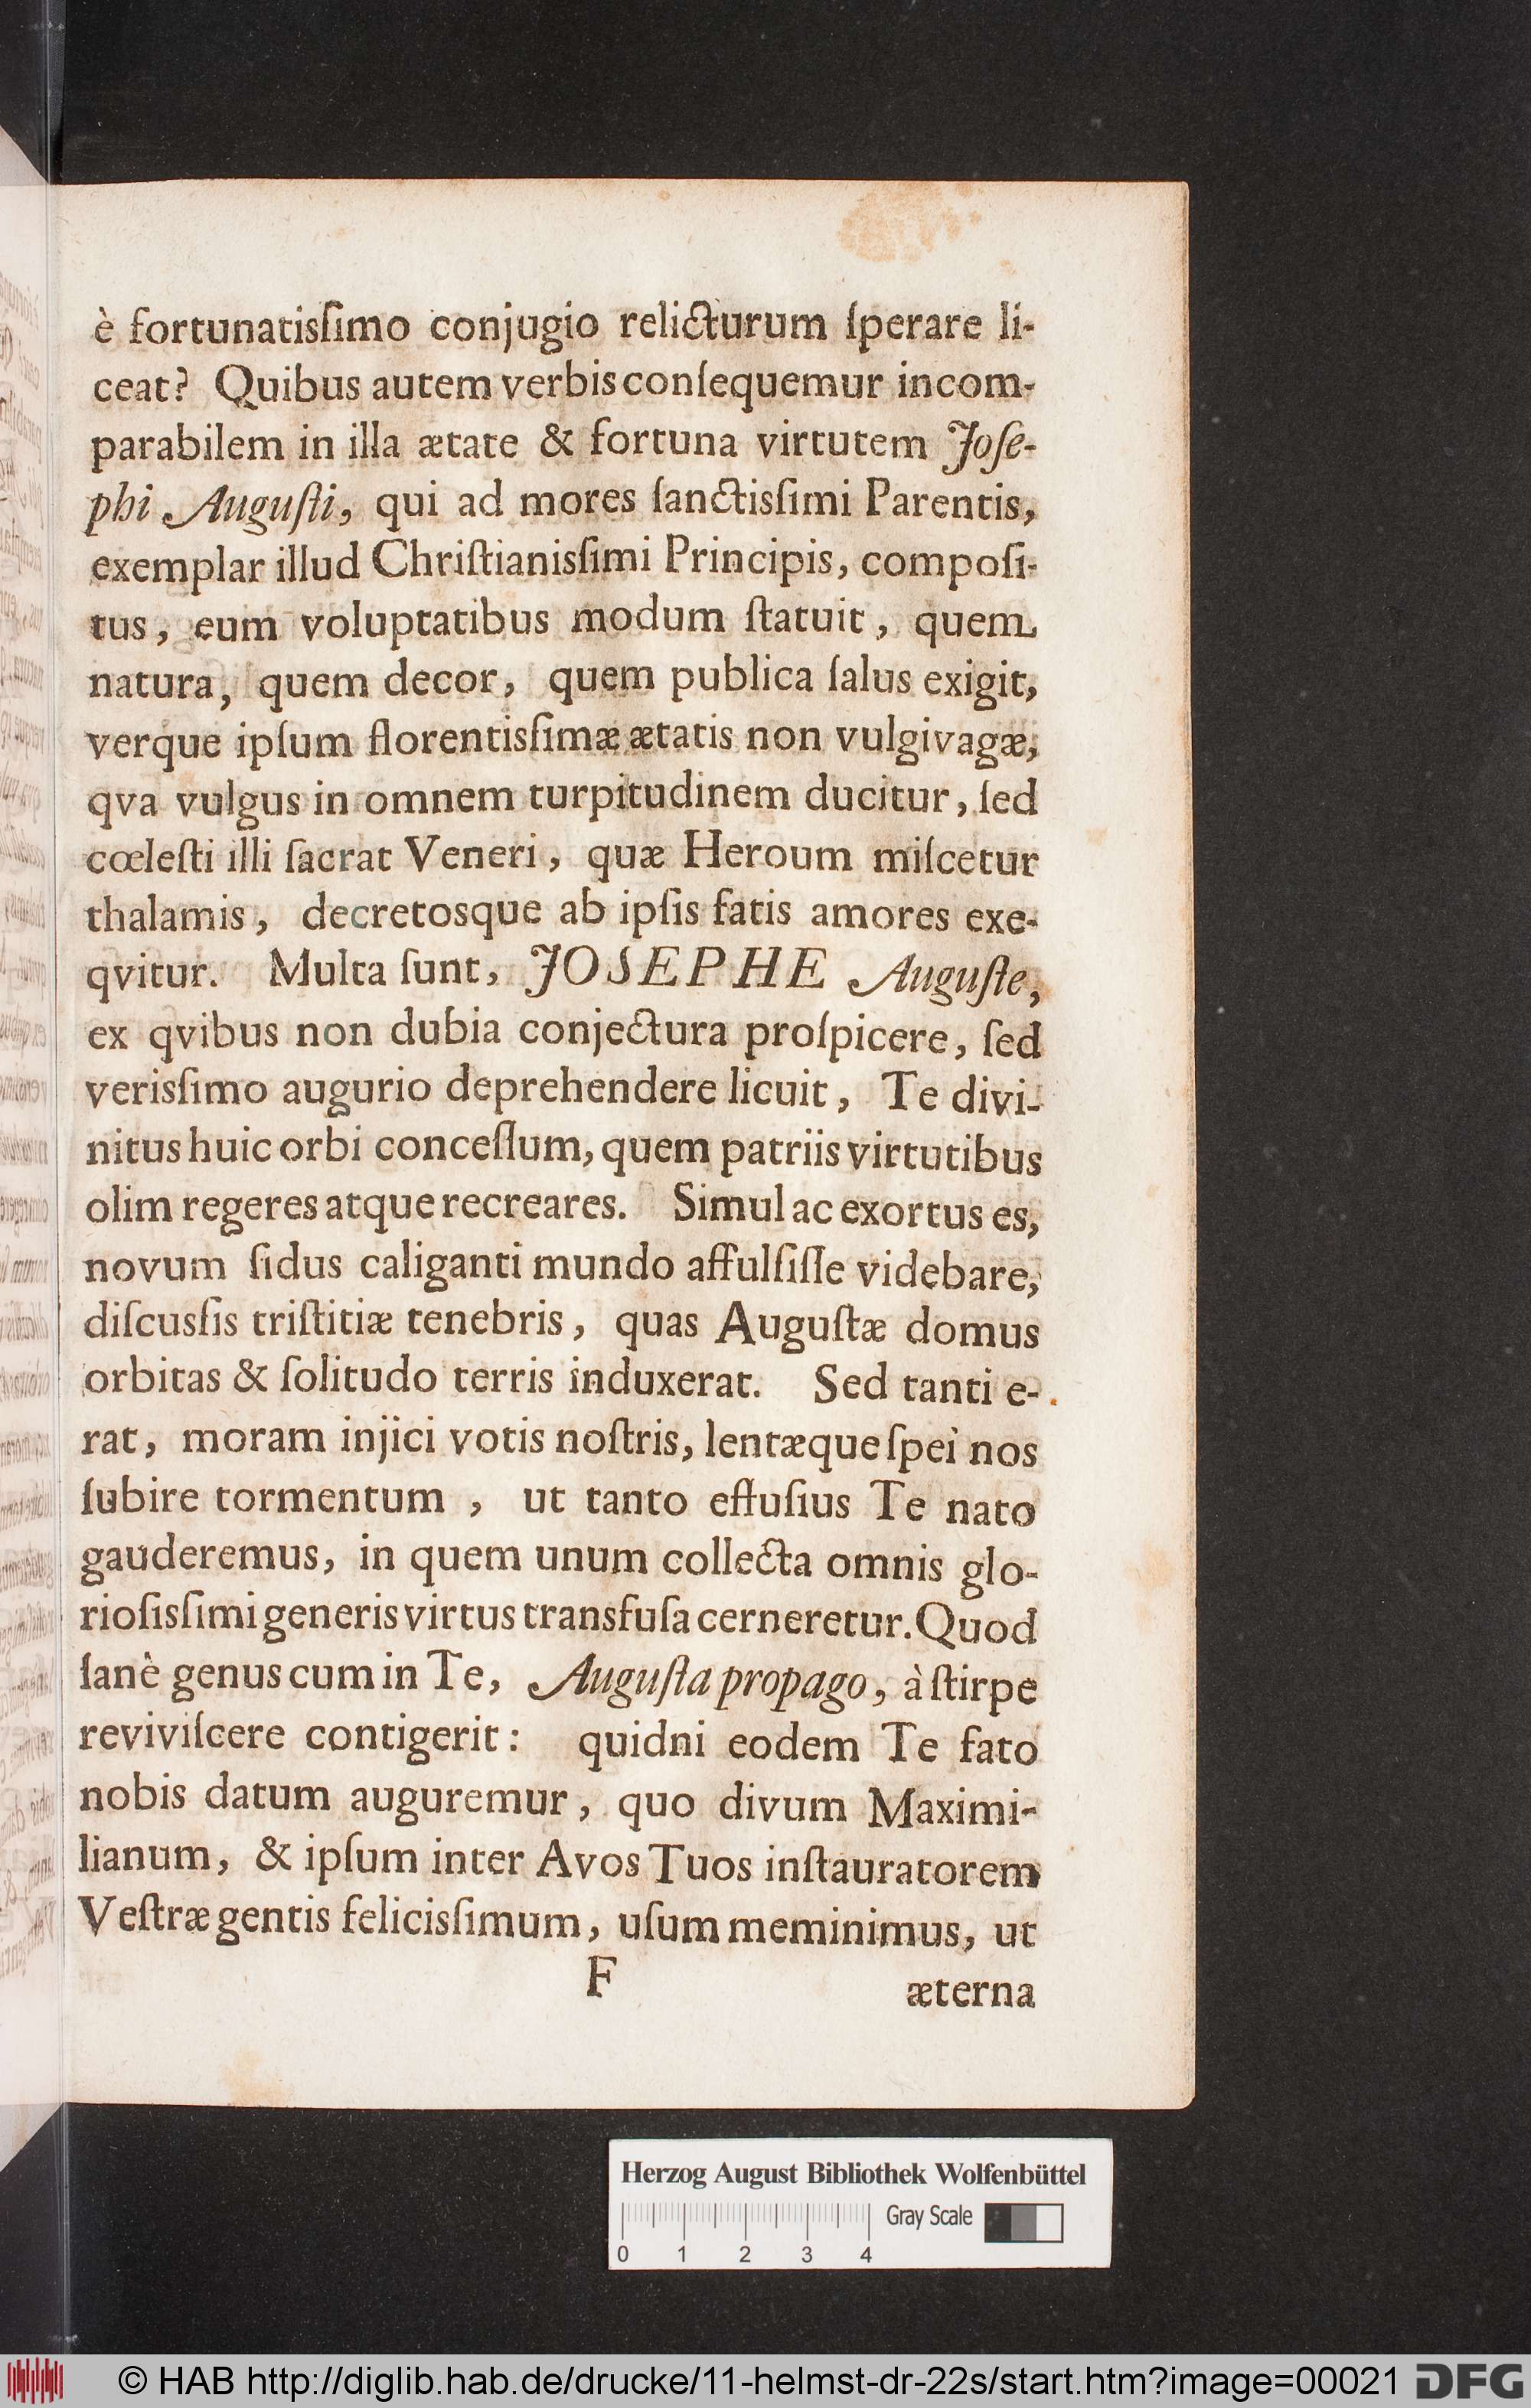 è fortunatisſimo conjugio relicturum ſperare li-
ceat? Quibus autem verbis conſequemur incom-
parabilem in illa ætate & fortuna virtutem Joſe-
phi Auguſti, qui ad mores ſanctisſimi Parentis,
exemplar illud Chriſtianisſimi Principis, compoſi-
tus, eum voluptatibus modum ſtatuit, quem
natura, quem decor, quem publica ſalus exigit,
verq́ue ipſum florentisſimæ ætatis non vulgivagæ,
qva vulgus in omnem turpitudinem ducitur, ſed
cœleſti illi ſacrat Veneri, quæ Heroum miſcetur
thalamis, decretosque ab ipſis fatis amores exe-
qvitur. Multa ſunt, JOSEPHE Auguſte,
ex qvibus non dubia conjectura proſpicere, ſed
verisſimo augurio deprehendere licuit, Te divi-
nitus huic orbi conceſſum, quem patriis virtutibus
olim regeres atque recreares. Simul ac exortus es,
novum ſidus caliganti mundo affulſiſſe videbare,
diſcusſis triſtitiæ tenebris, quas Auguſtæ domus
orbitas & ſolitudo terris induxerat. Sed tanti e-
rat, moram injici votis noſtris, lentæque ſpei nos
ſubire tormentum, ut tanto effuſius Te nato
gauderemus, in quem unum collecta omnis glo-
rioſisſimi generis virtus transfuſa cerneretur. Quod
ſanè genus cum in Te, Auguſta propago, à ſtirpe
reviviſcere contigerit: quidni eodem Te fato
nobis datum auguremur, quo divum Maximi-
lianum, & ipſum inter Avos Tuos inſtauratorem
Veſtræ gentis felicisſimum, uſum meminimus, ut
F
æterna
Herzog August Bibliothek Wolfenbüttel
Gray Scale
0 1 2 3 4
© HAB http://diglib.hab.de/drucke/11-helmst-dr-22s/start.htm?image=00021
DFG